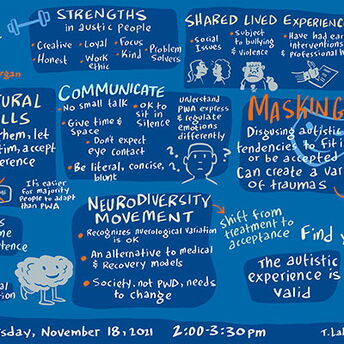 STRENGTHS
in austic People
• Creative • Loyal • Focus • Problem
Honest • Work • Kind Solvers
Ethic
SHARED LIVED EXPERIENC
• Social
Issues
• Subject
to bullying
& violence
• Have had ear
interventions
& professional h
rgan
TURAL
LLS
hem, let
tim, accept
ference
It's easier
for majority
People to adapt
than PWA
COMMUNICATE
• No small talk
• OK to
sit in
Silence
• Give time &
space
• Don't expect
eye contact
• Be literal, concise,
blunt
understand
PWA express
& regulate
emotions
differently
MASKING
Disguising autistic
tendencies to fit i
or be accepted
Can create a var
of traumas
NEURODIVERSITY
MOVEMENT
• Recognizes neurological variation
is OK
• An alternative to medical
& Recovery models
• Society, not PWD, needs
to change
Shift from
treatment to
acceptance
Find y
The autistic
experience is
valid
s
me
tence
al
ation
sday, November 18, 2021 2:00-3:30 pm
T. Lal